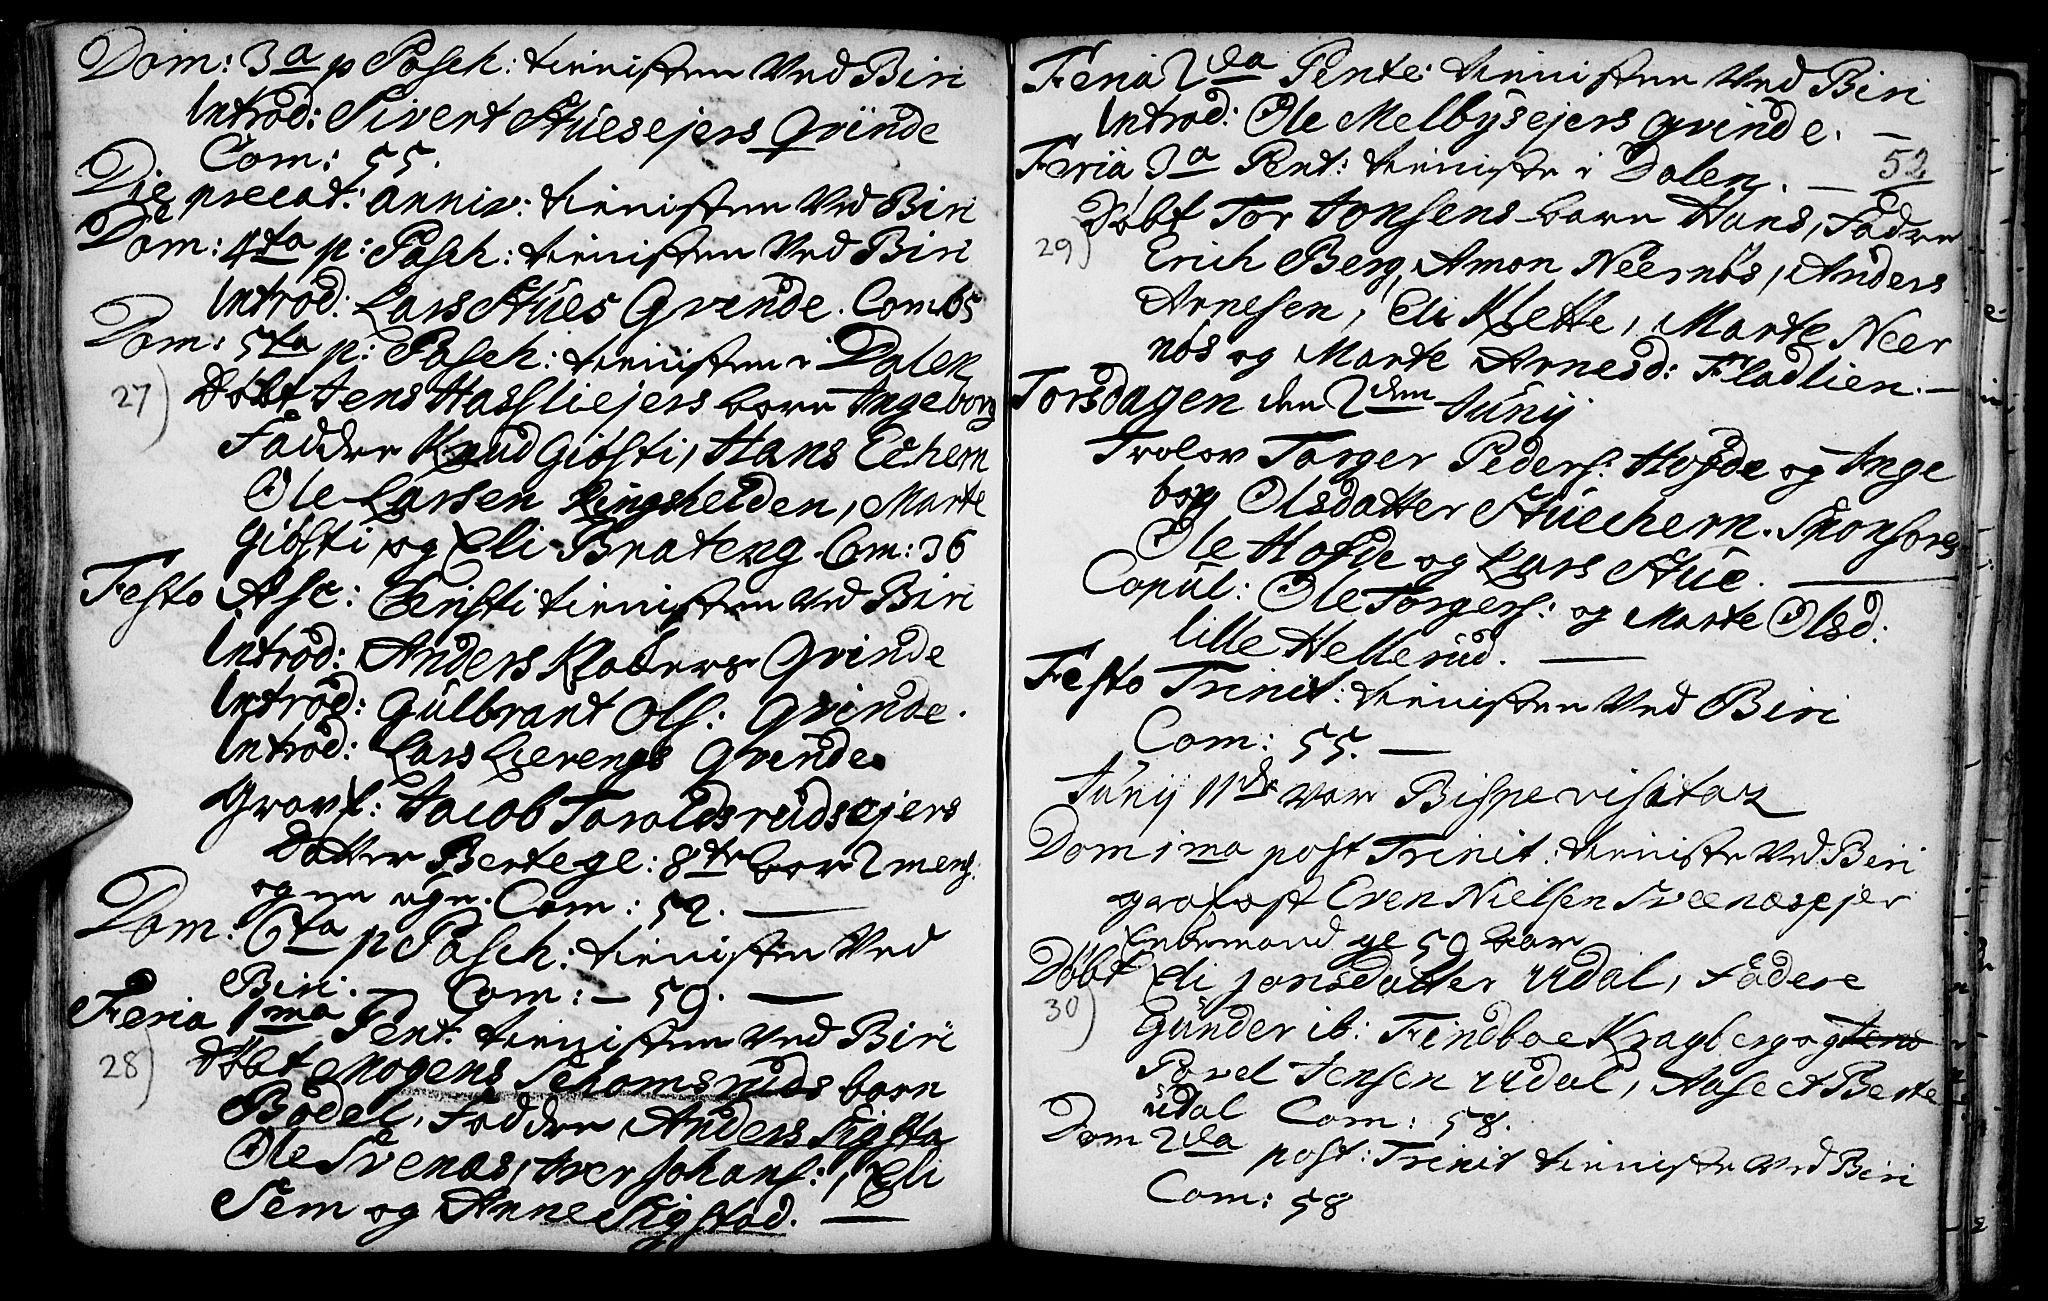 Dom: 3a p Pasch: tienisten Ved Biri
Introd: Sivert Stuesejers Qvinde
Com: 55.
Die precat: anniv: tienisten Ved Biri
Dom: 4ta p: Pasch: tienisten Ved Biri
Introd: Lars Stues Qvinde. Com: 65
Dom: 5ta p: Pasch: tienisten i Dalen
27) Døbt Jens Hasslieejers barn Ingeborg
Faddre Knud Giøsti, Hans Echern
Ole Larsen Ringshelden, Marte
Giøsti og Eli Brateng. Com: 36
Festo Asc: Christi tienisten Ved Biri
Introd: Anders Klabers Qvinde
Introd: Gulbrant Ols: Qvinde.
Introd: Lars Lierengs Qvinde.
Gravf: Jacob Taraldsrudsejers
Datter Berte ge: 8te har 2 mens:
og en uge. Com: 52.
Dom: 6ta p Pasch: tienisten Ved
Biri. — Com: — 59. —
Feria 1ma Pent: tienisten Ved Biri
28) Døbt Mogens Schomsruds barn
Bodel, Faddre Anders Sigsta
Ole Svenæs, Iver Johans:, Eli
Sem og Anne Sigstad. —
Feria 2da Pente: tienisten Ved Biri
Introd: Ole Melbysejers qvinde. —
Feria 3a Pent: tieniste i Dalen. — 52
29) Døbt Tor Jonsens barn Hans, Fadre
Erich Berg, Amon Neernøs, Anders
Arnesen, Eli Klette, Marte Neer
nøs og Marte Arnesd: Fladlien. —
Torsdagen den 2den Junij
Trolov Torger Peders: Hofde og Inge
borg Olsdatter Stuechern. Sponsores
Ole Hofde og Lars Stue. —
Copul: Ole Torgers: og Marte Olsd:
lille Hellerud. —
Festo Trinit: tienisten Ved Biri
Com: 55. —
Junij 11de var Bispe visitatz
Dom 1ma post Trinit: tieniste Ved Biri
grafæst Even Nielsen Sveenæsejer
Enkemand ge 59 aar
Døbt Eli jonsdatter Udal, Fadere
30) Gunder ib: Findboe Kragberg og Jens
Povel Jensen Udal, Aase et Berte
Udal Com: 58.
Dom 2da post: Trinit tieniste Ved Biri
Com: 58